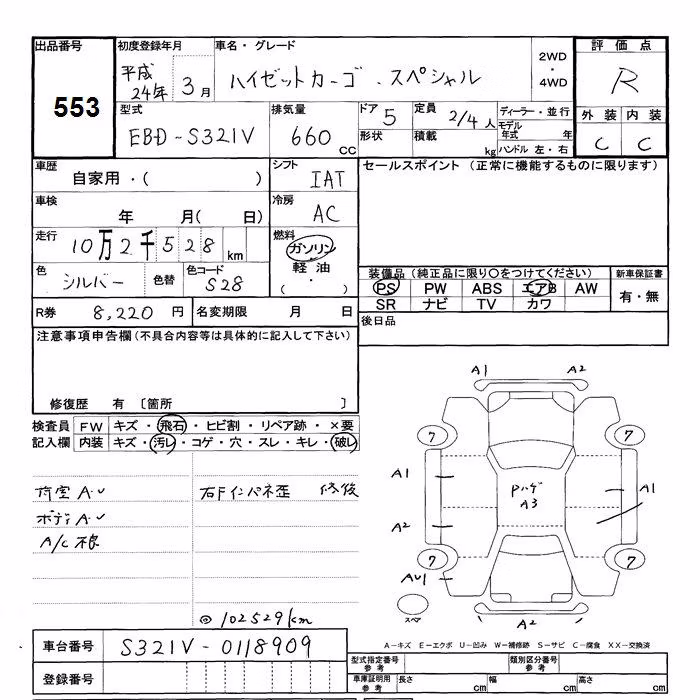 出品番号 初度登録年月 車名・グレード 評価点
553 平成24年 3月 ハイゼットカーゴ . スペシャル 2WD・4WD R
型式 排気量 ドア 5 定員 2/4人 ディーラー・並行 外装 内装
EBD-S321V 660 CC 形状 積載 kg モデル年式 年 ハンドル 左・右 C C
車歴 シフト セールスポイント (正常に機能するものに限ります)
自家用・( ) IAT
車検 冷房
年 月( 日) AC
走行 10万2千528km 燃料
ガソリン
軽油
( ・ )
色 シルバー 色替 色コード S28
装備品(純正品に限り○をつけてください) 新車保証書
PS PW ABS エアB AW 有・無
SR ナビ TV カワ
R券 8,220 円 名変期限 月 日 後日品
注意事項申告欄(不具合内容等は具体的に記入して下さい)
修復歴 有 〔箇所 〕
検査員 FW キズ・飛石・ヒビ割・リペア跡・×要
記入欄 内装 キズ・汚レ・コゲ・穴・スレ・キレ・破レ
荷室 A・レ 右Fインパネ歪 修復
ボディ A・レ
A/C 不良
◎102529km
A1 A2
7 7
A1 Pハゲ A3 A1
A2
7 7
AU1
スペア A2
車台番号 S321V-0118909
A−キズ E−エクボ U−凹み W−補修跡 S−サビ C−腐食 XX−交換済
登録番号
型式指定番号 参考 類別区分番号 参考
車庫証明用 参考 長さ cm 幅 cm 高さ cm